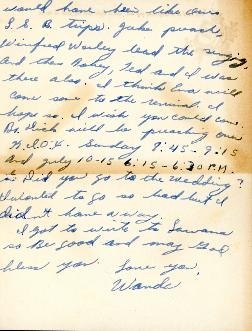 would have been like our
S. E. B. trip. Jake preach,
Winfred Worley lead the singing
And then Baby, Ted and I was
there also. I think Eva will
come some to the revival. I
hope so. I wish you could come.
Bro. Dick will be preaching over
W.I.O.K. Sunday 8:45 - 9:15
And July 10-15 6:15 - 6:30 P.M.
Did you go to the wedding?
I wanted to go so bad but I
didn't have a way.
I got to write to
so be good and may God
bless you. Love you,
Wande